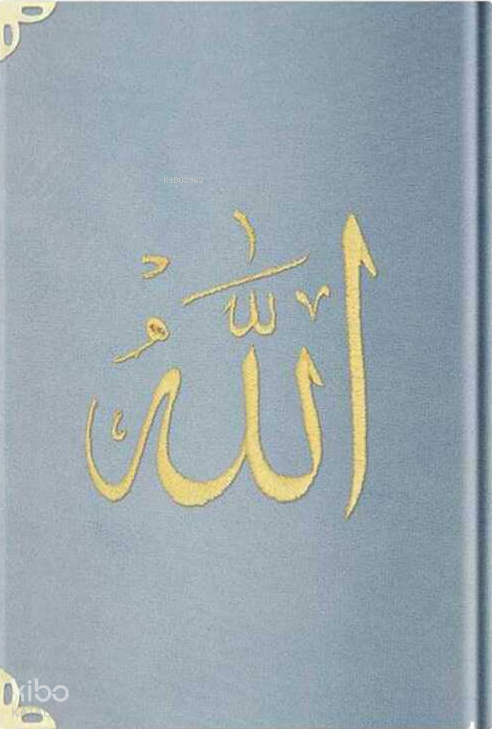 اللّٰهُ
kibo